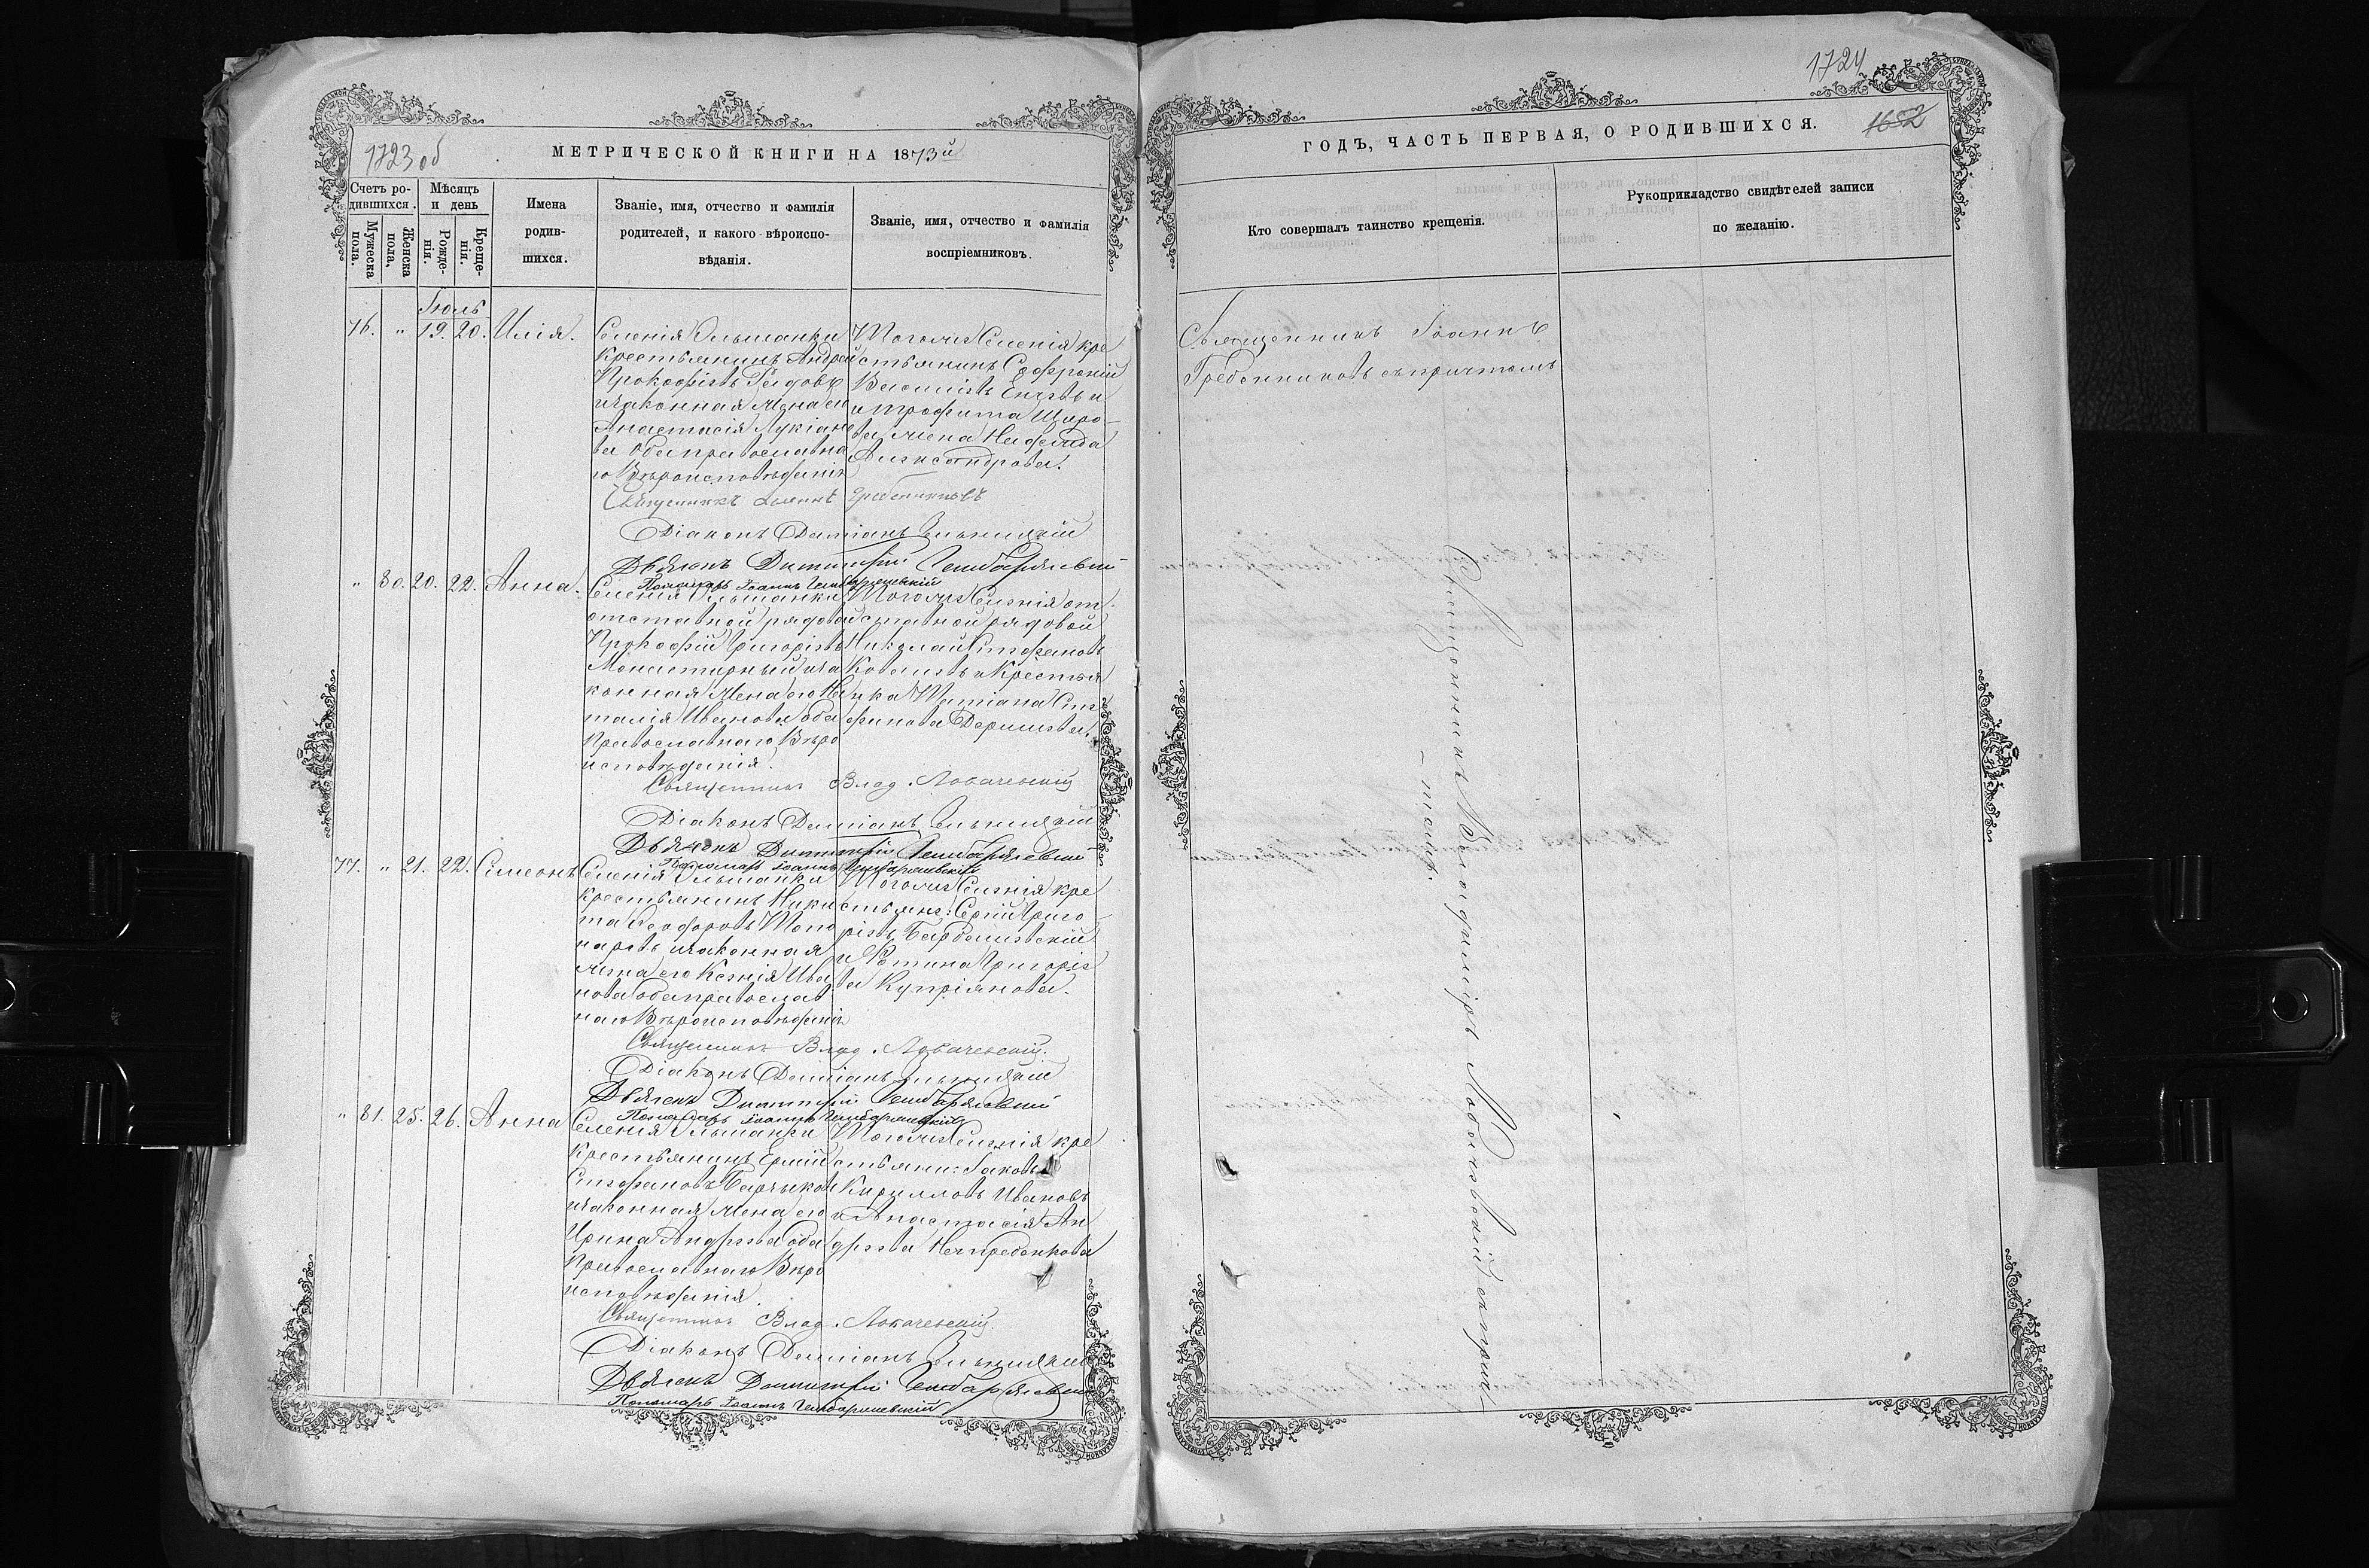 1723 об
МЕТРИЧЕСКОЙ КНИГИ НА 1873й
Счетъ ро-
дившихся.
Мужеска пола.
Женска пола,
Мѣсяцъ
и день
Рожде-
нія.
Креще-
нія.
Имена
родив-
шихся.
Званіе, имя, отчество и фамилія
родителей, и какого вѣроиспо-
вѣданія.
Званіе, имя, отчество и фамилія
воспріемниковъ.
Іюль
76. " 19. 20. Илія.
Селенія Ольшанки
Крестьянинъ Андрей
Прокофіевъ
изаконная жена его
Анастасія Лукіано
ва оба православна
го Вѣроисповѣданія
Тогоже Селенія кре
стьянинъ Софроній
Василіевъ
и
жена
Александрова.
Священникъ Іоаннъ Гребенниковъ
Діаконъ Даміанъ
Дьячекъ Димитрій
Пономарь Іоаннъ
" 80. 20. 22. Анна.
Селенія Ольшанки
отставной рядовой
Прокофій Григоріевъ
иза
конная жена его На
талія Иванова оба
Православнаго Вѣро
исповѣданія.
Тогоже Селенія от
ставной рядовой
Николай Стефановъ
и Крестья
нка Татіана Сте
фанова
Священникъ Влад. Лобачевскій
Діаконъ Даміанъ
Дьячекъ Димитрій
Пономарь Іоаннъ
77. " 21. 22. Симеонъ
Селенія Ольшанки
крестьянинъ Ники
та Феодоровъ
изаконная
жена его Ксенія Ива
нова оба православ
наго Вѣроисповѣданія
Тогоже Селенія кре
стьяне: Сергій Григо-
ріевъ
и Фотина Григоріе
ва Купріянова.
Священникъ Влад. Лобачевскій.
Діаконъ Даміанъ
Дьячекъ Димитрій
Пономарь Іоаннъ
" 81. 25. 26. Анна
Селенія Ольшанки
Крестьянинъ
Стефановъ
изаконная жена его
Ирина Андреева оба
Православнаго Вѣро
исповѣданія.
Тогоже Селенія кре
стьяни: Іаковъ
Кирилловъ Ивановъ
и Анастасія Ан
дреева
Священникъ Влад. Лобачевскій.
Діаконъ Даміанъ
Дьячекъ Димитрій
Пономарь Іоаннъ
1724
1652
ГОДЪ, ЧАСТЬ ПЕРВАЯ, О РОДИВШИХСЯ.
Кто совершалъ таинство крещенія.
Рукоприкладство свидѣтелей записи
по желанію.
Священникъ Іоаннъ
Гребенниковъ съ причтомъ
Священникъ Владиміръ Лобачевскій съ прич-
-томъ.